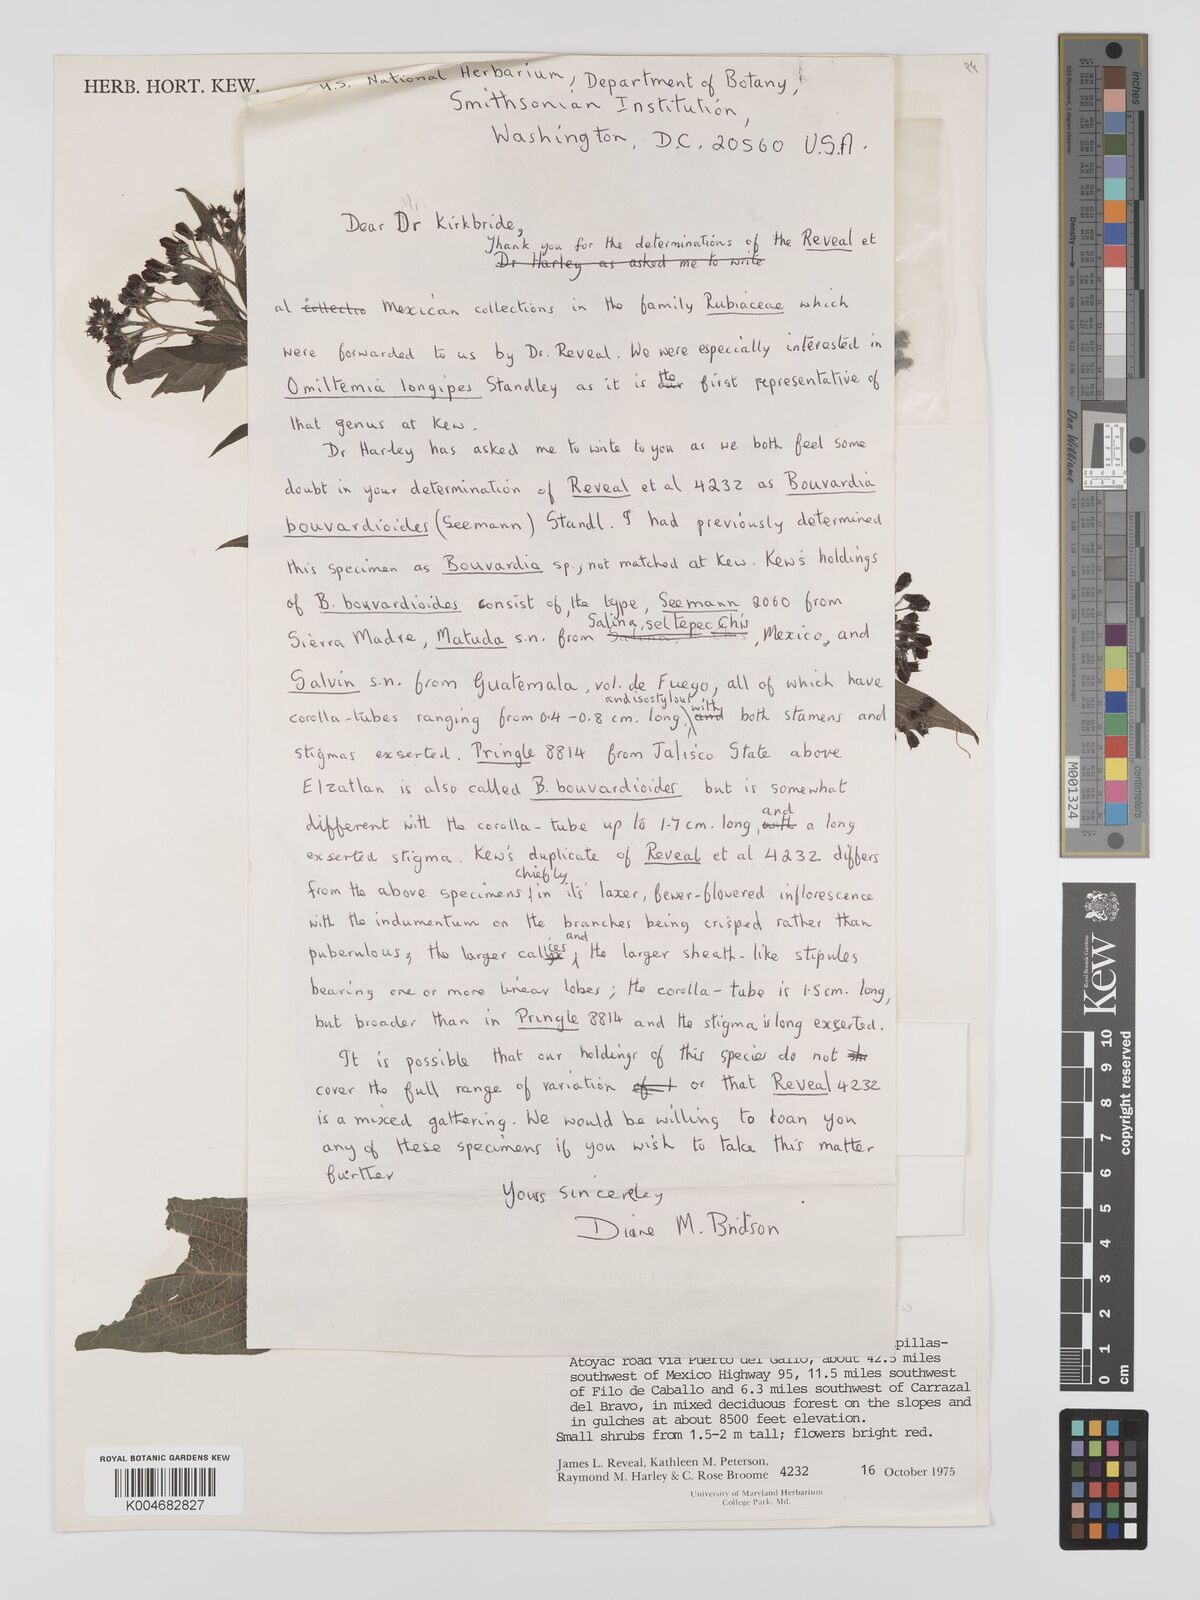 HERB. HORT. KEW.
U.S. National Herbarium, Department of Botany,
Smithsonian Institution,
Washington, D.C. 20560 U.S.A.
Mr.
Dear Dr Kirkbride,
Thank you for the determinations of the Reveal et
Dr Harley as asked me to write
al collectio Mexican collections in the family Rubiaceae which
were forwarded to us by Dr. Reveal. We were especially interested in
Omiltemia longipes Standley as it is the first representative of
that genus at Kew.
Dr Harley has asked me to write to you as we both feel some
doubt in your determination of Reveal et al 4232 as Bouvardia
bouvardioides (Seemann) Standl. I had previously determined
this specimen as Bouvardia sp., not matched at Kew. Kew's holdings
of B. bouvardioides consist of, the type, Seemann 2060 from
Salina, seltepec Chis
Sierra Madre, Matuda s.n. from Salina, Chis, Mexico, and
Salvin s.n. from Guatemala, vol. de Fuego, all of which have
and isostylous with
corolla-tubes ranging from 0.4-0.8 cm. long, and both stamens and
stigmas exserted. Pringle 8814 from Jalisco State above
Etzatlan is also called B. bouvardioides but is somewhat
and
different with the corolla-tube up to 1.7 cm. long, with a long
exserted stigma. Kew's duplicate of Reveal et al 4232 differs
chiefly
from the above specimens, in it's laxer, fewer-flowered inflorescence
with the indumentum on the branches being crisped rather than
and
puberulous, the larger calices, the larger sheath-like stipules
bearing one or more linear lobes; the corolla-tube is 1.5 cm. long,
but broader than in Pringle 8814 and the stigma is long exserted.
It is possible that our holdings of this species do not
cover the full range of variation of t or that Reveal 4232
is a mixed gathering. We would be willing to loan you
any of these specimens if you wish to take this matter
further
Yours sincereley
Diane M. Bridson
pillas-
Atoyac road via Puerto del Gallo, about 42.5 miles
southwest of Mexico Highway 95, 11.5 miles southwest
of Filo de Caballo and 6.3 miles southwest of Carrazal
del Bravo, in mixed deciduous forest on the slopes and
in gulches at about 8500 feet elevation.
Small shrubs from 1.5-2 m tall; flowers bright red.
James L. Reveal, Kathleen M. Peterson,
Raymond M. Harley & C. Rose Broome 4232 16 October 1975
University of Maryland Herbarium
College Park, Md.
ROYAL BOTANIC GARDENS KEW
K004682827
inches
centimeters
Density
Don Williams
M001324
Royal Botanic Gardens
Kew
copyright reserved
0 1 2 3 4 5 6 7 8 9 10
cm